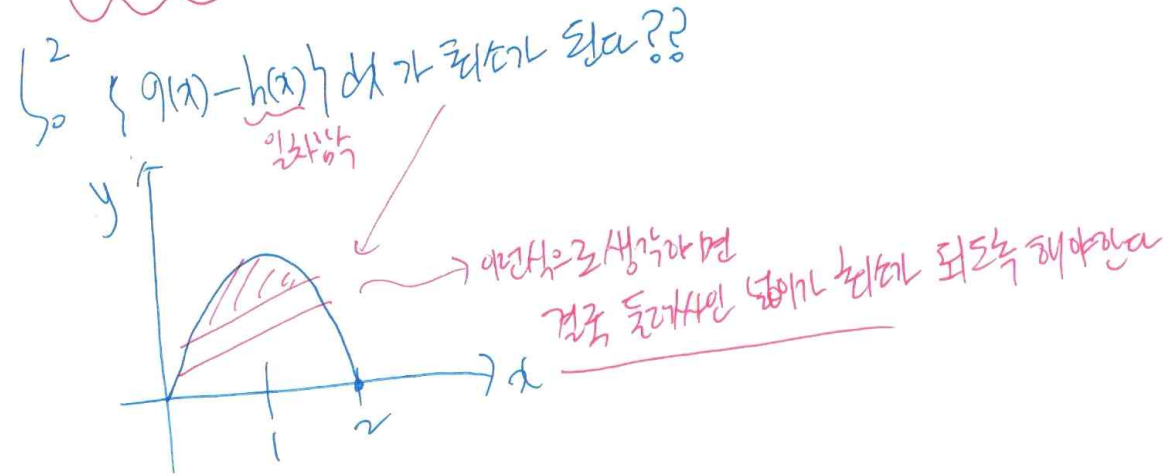 ∫₀² {g(x)-h(x)}dx 가 최소가 된다??
일차함수
y
→ 이런식으로 생각하면
결국 둘러싸인 넓이가 최소가 되도록 해야한다
x
1
2